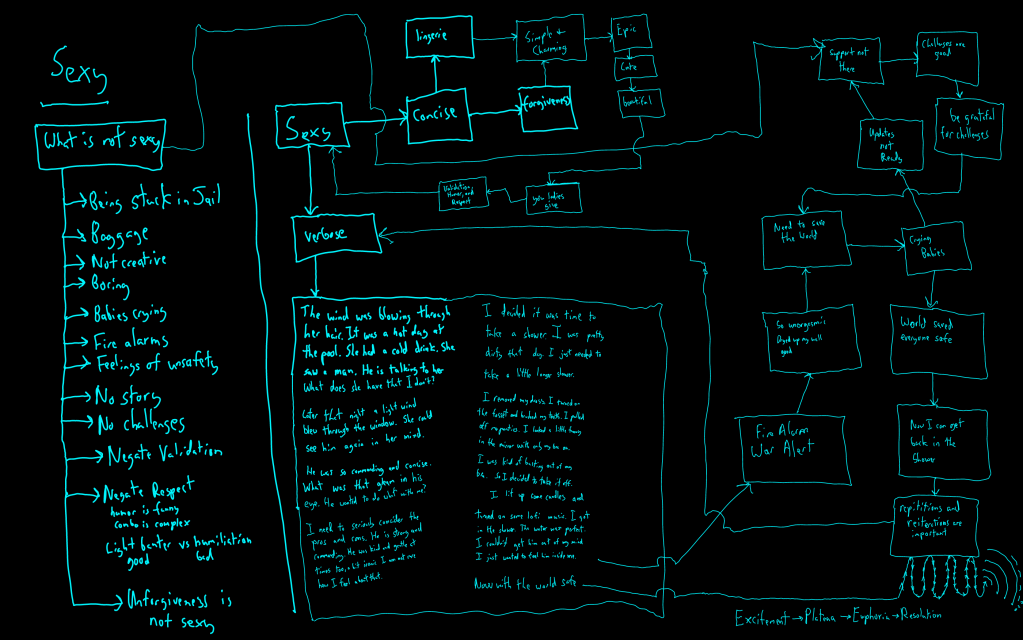 Sexy
What is not sexy
Being stuck in Jail
Baggage
Not creative
Boring
Babies crying
Fire alarms
Feelings of unsafety
No story
No challenges
Negate Validation
Negate Respect
humor is funny
combo is complex
Light banter vs humiliation
good bad
Unforgiveness is
not sexy
Sexy
Concise
lingerie
Simple &
Charming
forgiveness
Epic
Cute
beautiful
you ladies
give
Validation,
Honor, and
Respect
verbose
The wind was blowing through
her hair. It was a hot day at
the pool. She had a cold drink. She
saw a man. He is talking to her
What does she have that I don't?
Later that night a light wind
blew through the window. She could
see him again in her mind.
He was so commanding and concise.
What was that gleam in his
eye. He wanted to do what with me?
I need to seriously consider the
pros and cons. He is strong and
commanding. He was kind and gentle at
times too, a bit ironic I am not sure
how I feel about that.
I decided it was time to
take a shower I was pretty
dirty that day. I just needed to
take a little longer shower.
I removed my dress. I turned on
the faucet and brushed my teeth. I pulled
off my panties. I looked a little funny
in the mirror with only my bra on.
I was kind of busting out of my
bra. So I decided to take it off.
I lit up some candles and
turned on some lofi music. I got
in the shower. The water was perfect.
I couldn't get him out of my mind
I just wanted to feel him inside me.
Now with the world safe
Support not
there
Challenges are
good
be grateful
for challenges
Updates
not
Ready
Need to save
the World
Crying
Babies
So unorgasmic
good
World saved
everyone safe
Fire Alarm
War Alert
Now I can get
back in the
Shower
repititions and
reiterations are
important
Excitement → Plateau → Euphoria → Resolution